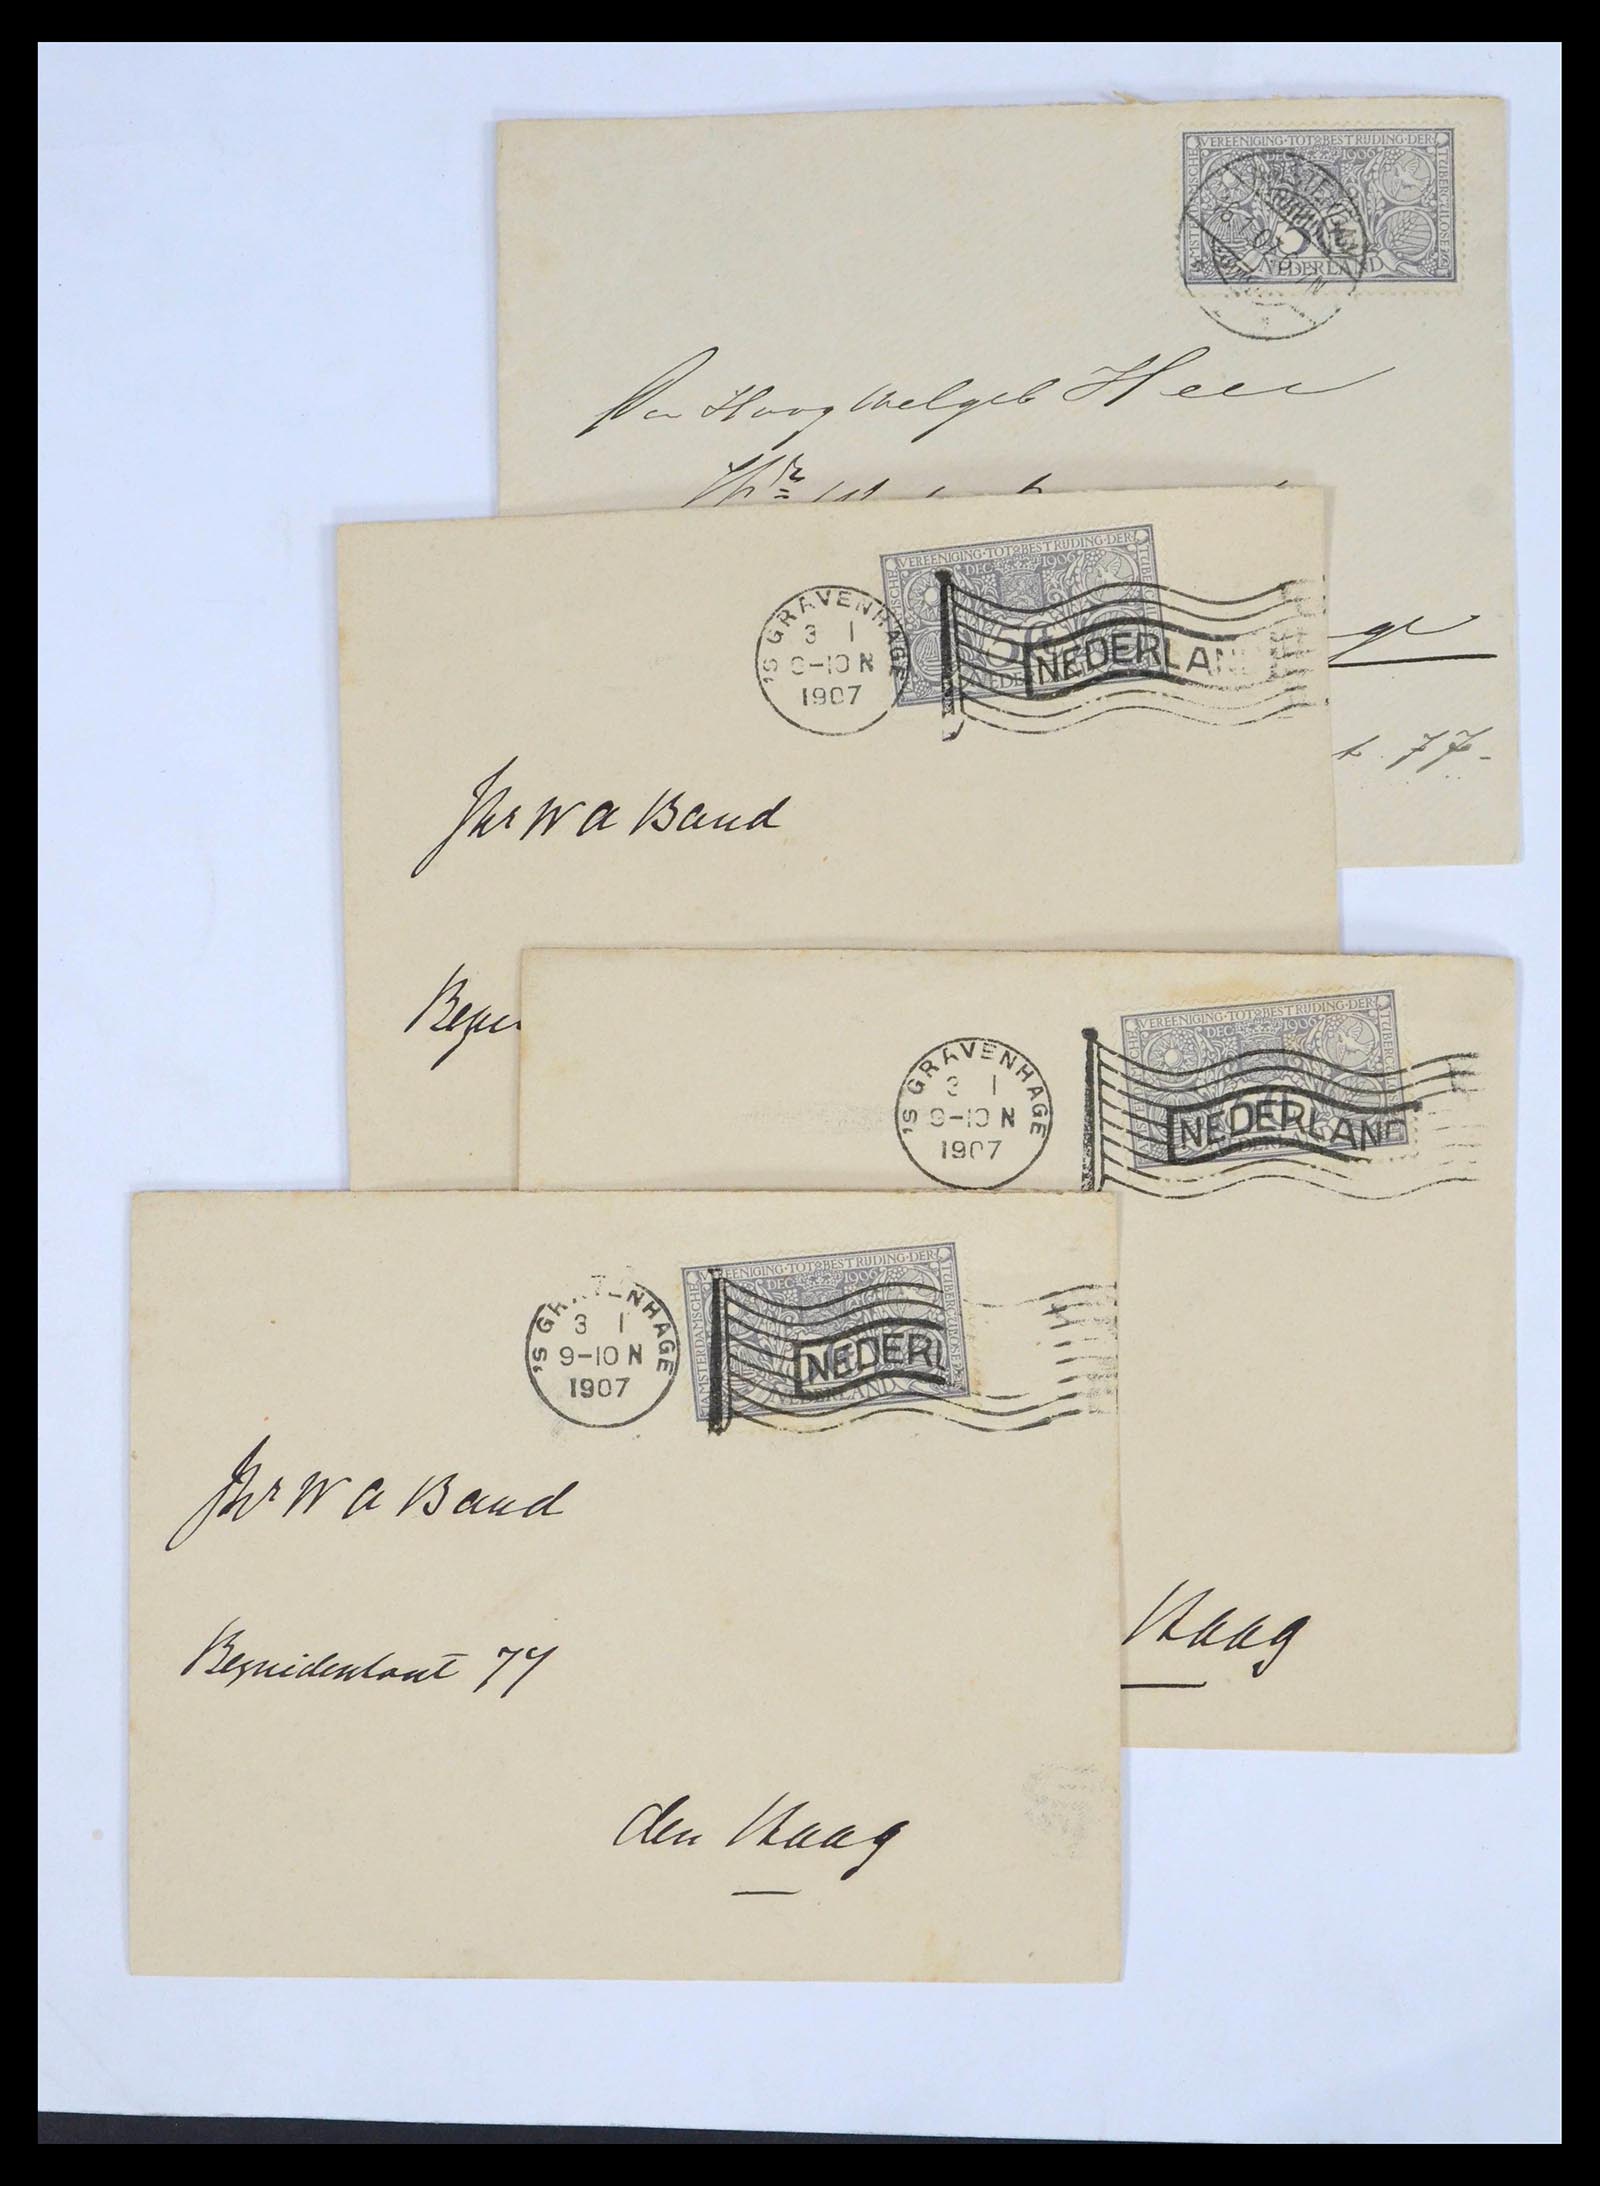 VEREENIGING·TOT·BESTRIJDING·DER
TUBERCULOSE
DEC 1906
NEDERLAND
Den Hoog Welgeb Heer
77-
VEREENIGING·TOT·BESTRIJDING·DER
DEC 1906
5ct
'S GRAVENHAGE
3 1
9-10 N
1907
NEDERLAN
Jhr W A Baud
VEREENIGING·TOT·BESTRIJDING·DER
TUBERCULOSE
DEC 1906
'S GRAVENHAGE
3 1
9-10 N
1907
NEDERLAND
Haag
VEREENIGING·TOT·BESTRIJDING·DER
AMSTERDAMSCHE
TUBERCULOSE
DEC 1906
NEDERLAND
'S GRAVENHAGE
3 1
9-10 N
1907
NEDERL
Jhr W A Baud
Bezuidenhout 77
den Haag